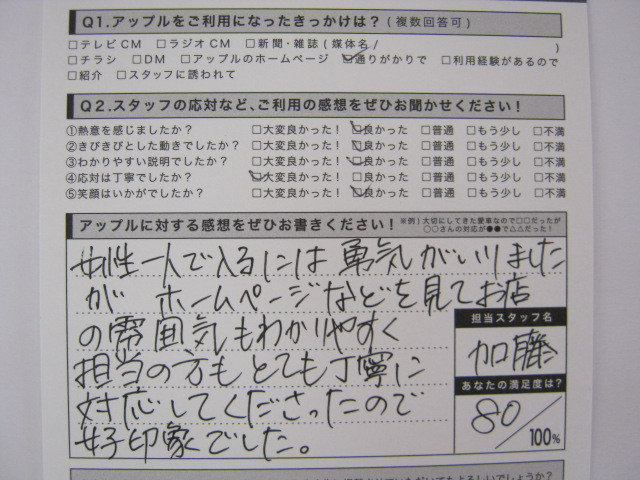 Q1.アップルをご利用になったきっかけは？(複数回答可)
□テレビCM □ラジオCM □新聞・雑誌(媒体名/ )
□チラシ □DM □アップルのホームページ □通りがかりで □利用経験があるので
□紹介 □スタッフに誘われて
Q2.スタッフの応対など、ご利用の感想をぜひお聞かせください！
①熱意を感じましたか？ □大変良かった！ □良かった □普通 □もう少し □不満
②きびきびとした動きでしたか？ □大変良かった！ □良かった □普通 □もう少し □不満
③わかりやすい説明でしたか？ □大変良かった！ □良かった □普通 □もう少し □不満
④応対は丁寧でしたか？ □大変良かった！ □良かった □普通 □もう少し □不満
⑤笑顔はいかがでしたか？ □大変良かった！ □良かった □普通 □もう少し □不満
アップルに対する感想をぜひお書きください！
※例）大切にしてきた愛車なので□□だったが
○○さんの対応が●●で△△だった！
女性一人で入るには勇気がいりました
が ホームページなどを見てお店
の雰囲気もわかりやすく
担当の方もとても丁寧に
対応してくださったので
好印象でした。
担当スタッフ名
加藤
あなたの満足度は？
80/100%